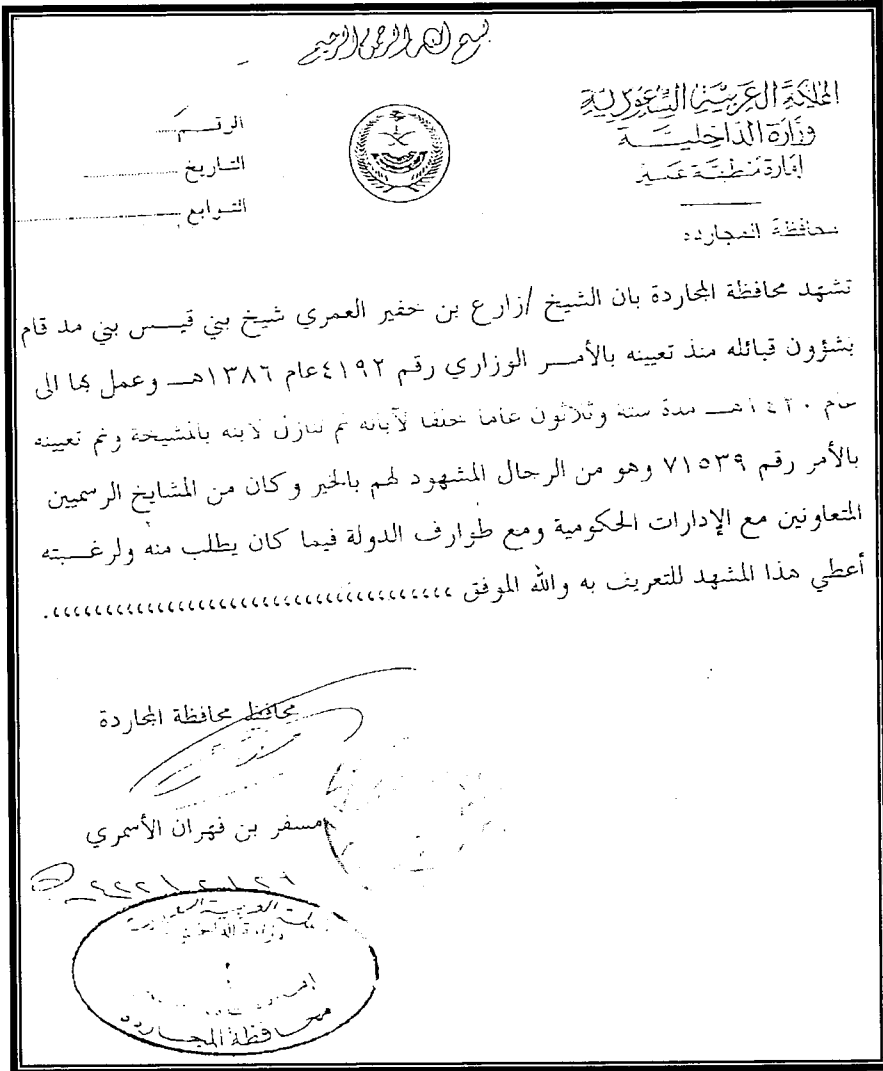 بسم الله الرحمن الرحيم
المملكة العربية السعودية
وزارة الداخلية
إمارة منطقة عسير
محافظة المجارده
الرقم
التاريخ
التوابع
تشهد محافظة المجاردة بان الشيخ /زارع بن حفير العمري شيخ بني قيس بني مد قام
بشؤون قبائله منذ تعيينه بالأمر الوزاري رقم ٤١٩٢عام ١٣٨٦هـ وعمل بها الى
عام ١٤٢٠هـ مدة ستة وثلاثون عاما خلفا لآبائه ثم تنازل لابنه بالمشيخة وتم تعيينه
بالأمر رقم ٧١٥٣٩ وهو من الرجال المشهود لهم بالخير وكان من المشايخ الرسميين
المتعاونين مع الإدارات الحكومية ومع طوارف الدولة فيما كان يطلب منه ولرغبته
أعطي هذا المشهد للتعريف به والله الموفق ،،،،،،،،،،،،،،،،،،،،،،،،،،،،،،،،،،،،،،.
محافظ محافظة المجاردة
مسفر بن فهران الأسمري
وزارة الداخلية
محافظة المجارده